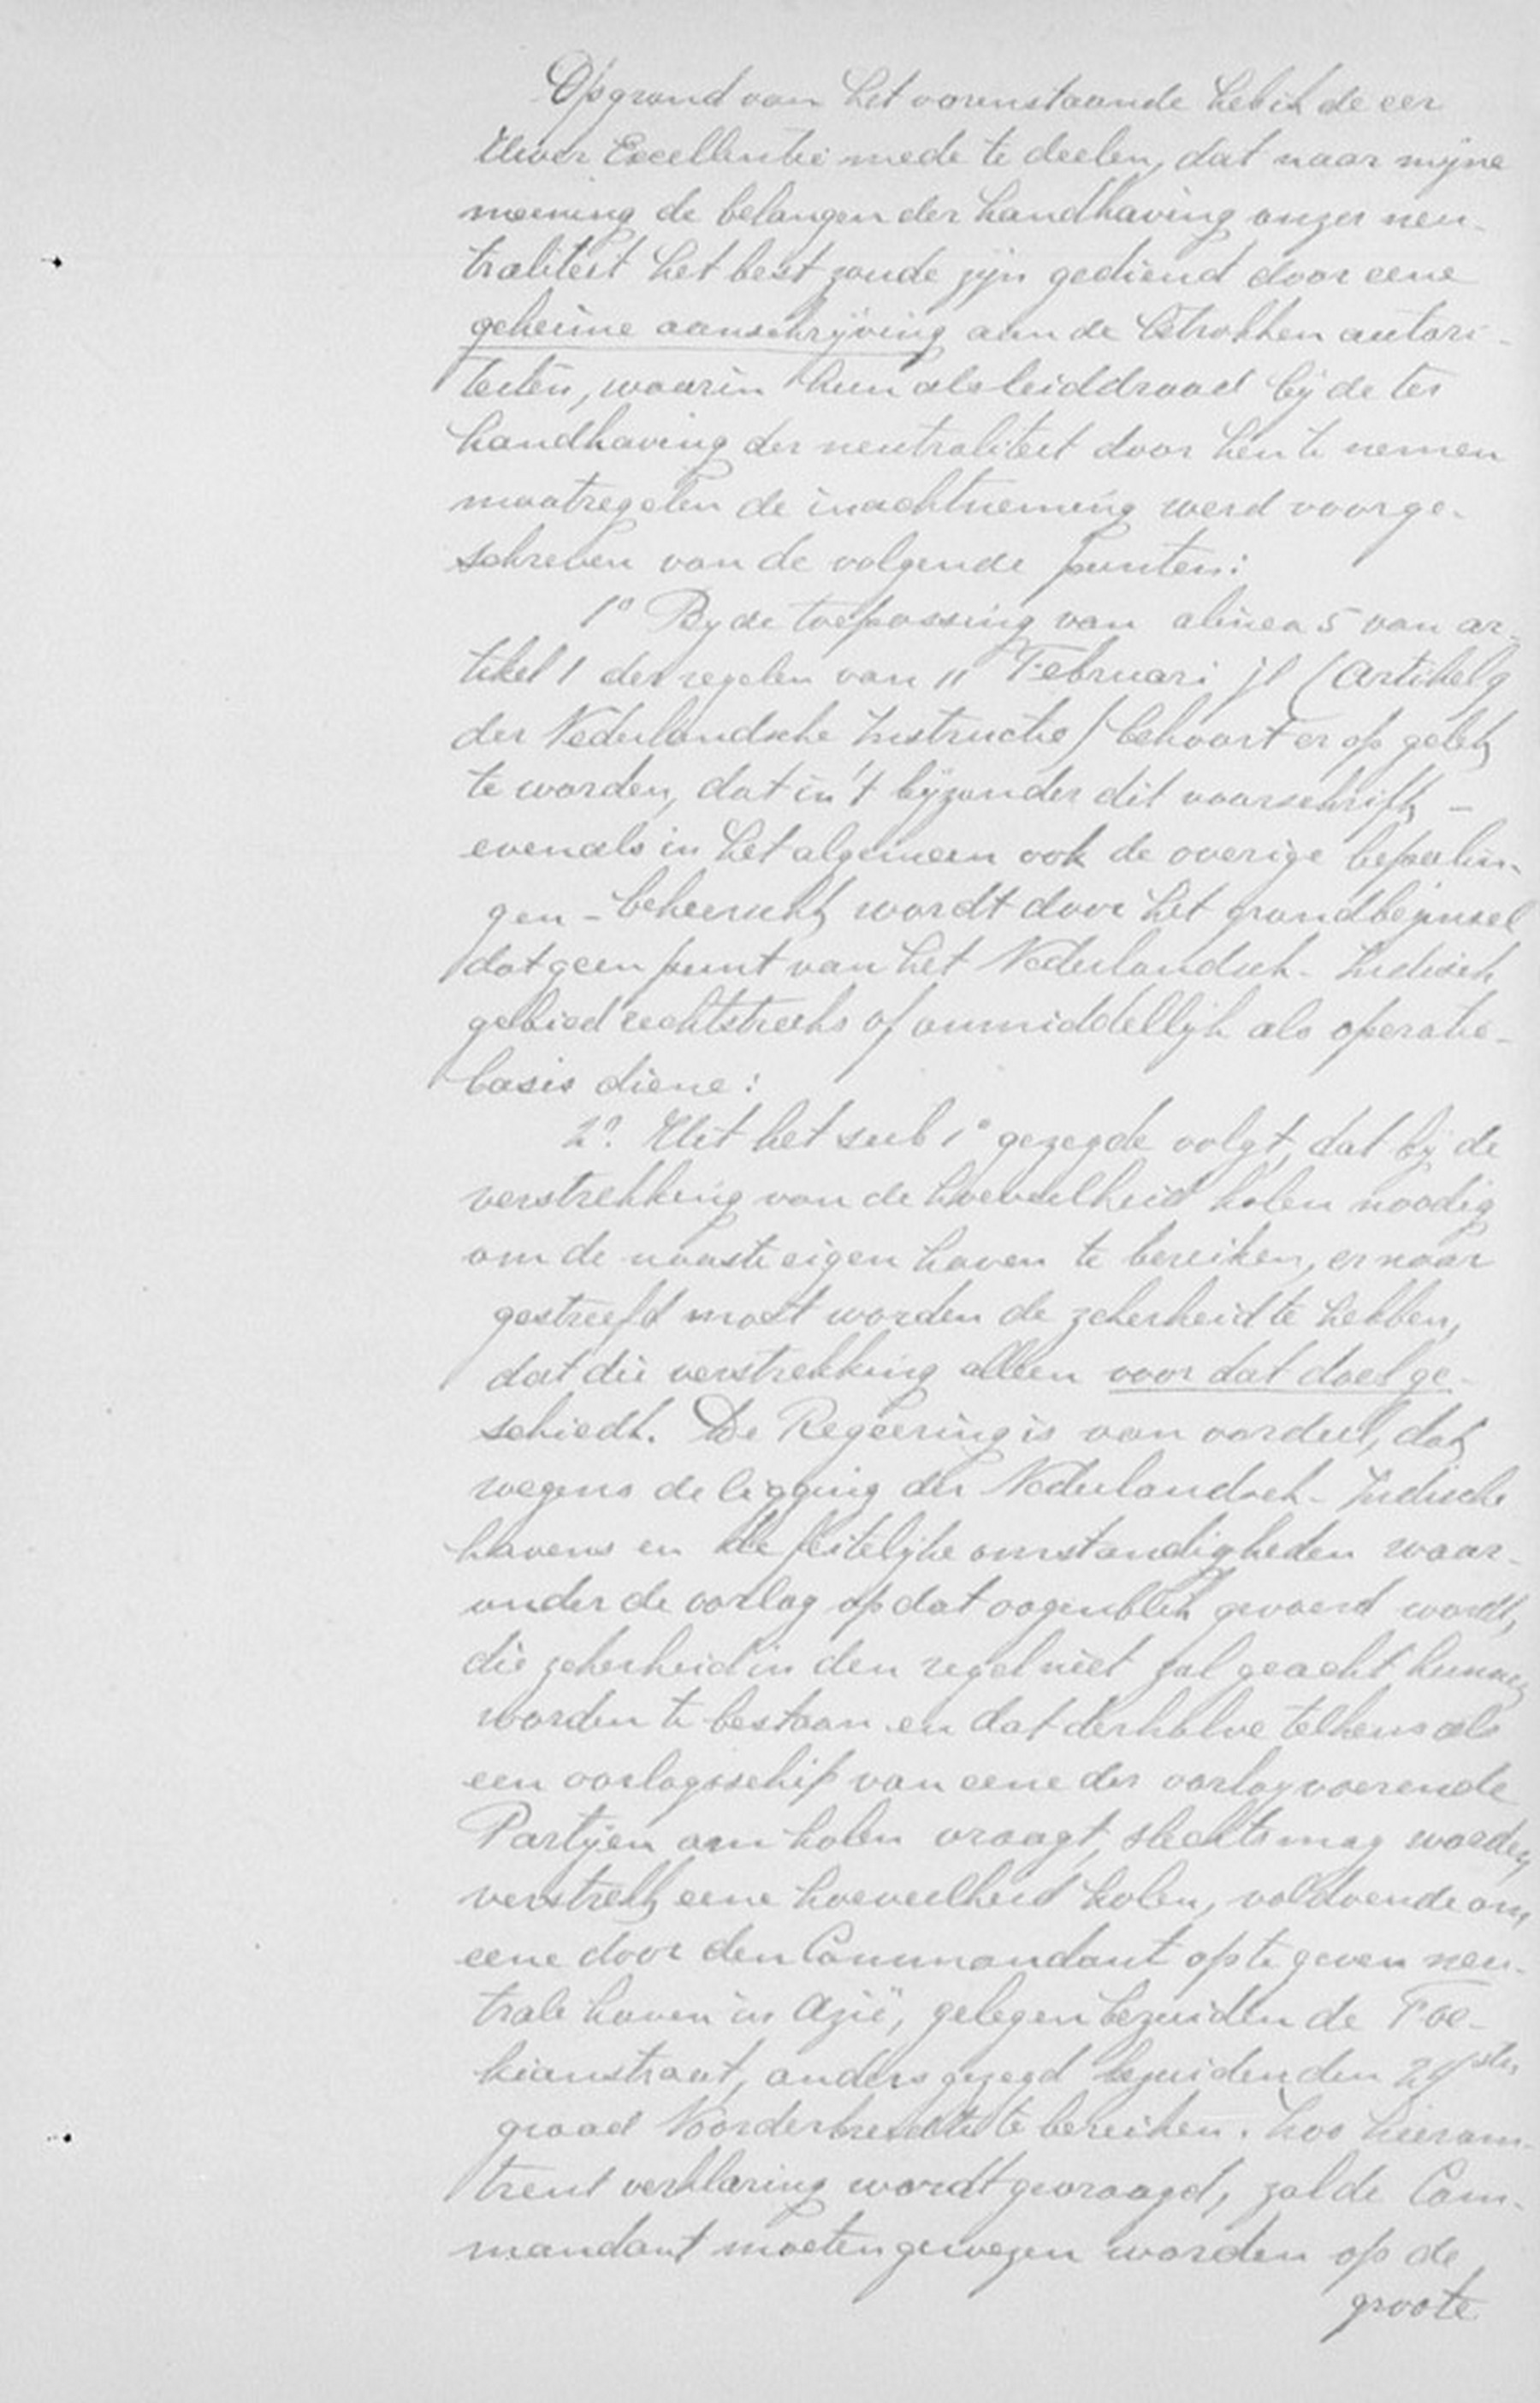 Op grond van het vorenstaande heb ik de eer
Uwer Excellentie mede te deelen, dat naar mijne
meening de belangen der handhaving onzer neu-
traliteit het best zoude zijn gediend door eene
geheime aanschrijving aan de betrokken autori-
teiten, waarin hun als leiddraad bij de ter
handhaving der neutraliteit door hen te nemen
maatregelen de inachtneming werd voorge-
schreven van de volgende punten:
1º By de toepassing van alinea 5 van ar-
tikel 1 der regelen van 11 Februari jl (artikel 9
der Nederlandsche Instructie) behoort er op gelet
te worden, dat in 't bijzonder dit voorschrift -
evenals in het algemeen ook de overige bepalin-
gen - beheerscht wordt door het grondbeginsel
dat geen punt van het Nederlandsch-Indisch
gebied rechtstreeks of onmiddellijk als operatie-
basis diene:
2º. Uit het sub 1º gezegde volgt, dat bij de
verstrekking van de hoeveelheid kolen noodig
om de naaste eigen haven te bereiken, er naar
gestreefd moet worden de zekerheid te hebben,
dat die verstrekking alleen voor dat doel ge-
schiedt. De Regeering is van oordeel, dat
wegens de ligging der Nederlandsch-Indische
havens en de feitelijke omstandigheden waar-
onder de oorlog op dat oogenblik gevoerd wordt,
die zekerheid in den regel niet zal geacht kunnen
worden te bestaan en dat derhalve telkens als
een oorlogsschip van eene der oorlogvoerende
Partijen om kolen vraagt, slechts mag worden
verstrekt eene hoeveelheid kolen, voldoende om
eene door den Commandant op te geven neu-
trale haven in Azië, gelegen bezuiden de Foe-
kianstraat, anders gezegd bezuiden den 24sten
graad Noorderbreedte te bereiken. Zoo hierom-
trent verklaring wordt gevraagd, zal de Com-
mandant moeten gewezen worden op de
groote